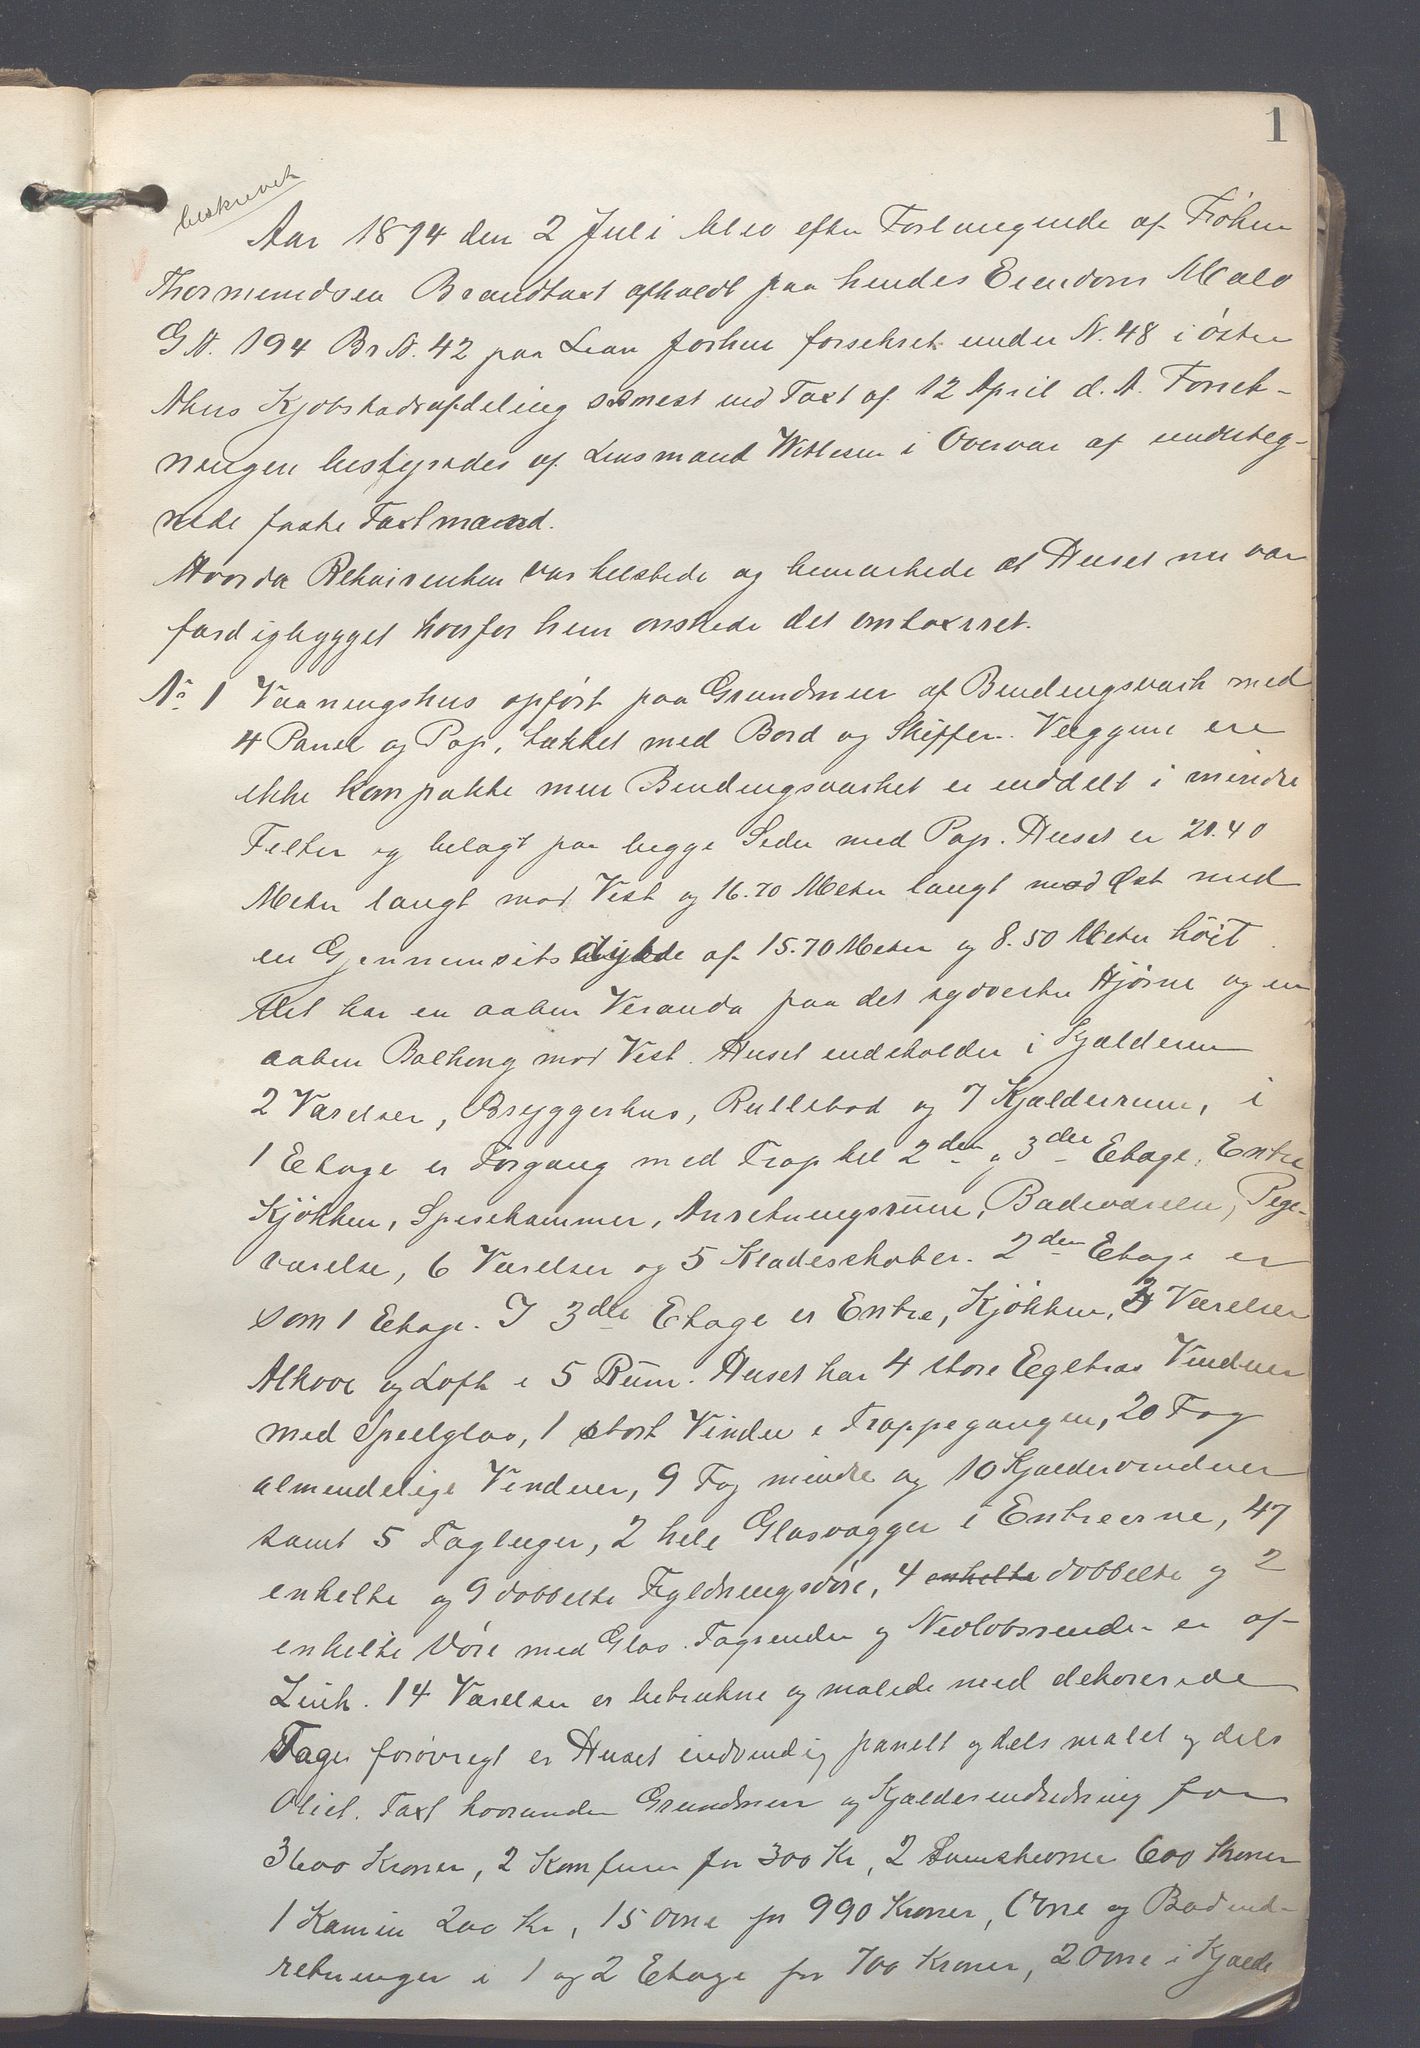 1
beskrevet
Aar 1894 den 2 Juli blev efter Forlangende af Frøken
Thormundsen Brandtaxt afholdt paa hendes Eiendom Malo
G.N. 194 Br.N. 42 paa Lran forhen forsekret under N. 48 i øster
Ahus Kjøbstadsafdeling senest ved Taxt af 12 April d. A. Forret-
ningen bestyredes af Lensmand Wetlesen i Overvær af underteg-
nede faste Taxtmænd.
Hvorda Rekvirenten var tilstede og bemærkede at Huset nu var
færdigbygget hvorfor hun ønskede det omtaxeret.
No 1 Vaaningshus opført paa Grundmur af Bindingsværk med
4 Panel og Pap, tækket med Bord og Skiffer. Væggene ere
ikke kompakte men Bindingsværket er inddelt i mindre
Felter og belagt paa begge Sider med Pap. Huset er 20.40
Meter langt mod Vest og 16.70 Meter langt mod Øst med
en Gjennemsnitsdybde af 15.70 Meter og 8.50 Meter høit.
Det har en aaben Veranda paa det sydvestre Hjørne og en
aaben Balkong mod Vest. Huset indeholder i Kjælderen
2 Værelser, Bryggerhus, Rullebod og 7 Kjælderrum, i
1 Etage er Forgang med Trap til 2den og 3die Etage, Entre
Kjøkken, Spisekammer, Anretningsrum, Badeværelse, Pige-
værelse, 6 Værelser og 5 Klædeskaber. 2den Etage er
som 1 Etage. I 3die Etage er Entre, Kjøkken, 3 Værelser
Alkove og Loft i 5 Rum. Huset har 4 store Egetræs Vinduer
med Speilglas, 1 stort Vindu i Trappegangen, 20 Fag
almindelige Vinduer, 9 Fag mindre og 10 Kjældervinduer
samt 5 Tagluger, 2 hele Glasvægger i Entreerne, 47
enkelte og 9 dobbelte Fyldningsdøre, 4 enkelte dobbelte og 2
enkelte Døre med Glas. Tagrender og Nedløbsrender er af
Zink. 14 Værelser er betrukne og malede med dekorerede
Tage forøvrigt er Huset indvendig panelt og dels malet og dels
Oliet. Taxt hvorunder Grundmur og Kjælderindredning for
3600 Kroner, 2 Komfurer for 300 Kr, 2 Skorstene 600 Kroner
1 Kamin 200 Kr, 15 Ovne for 990 Kroner, Ovne og Badeind-
retninger i 1 og 2 Etage for 700 Kroner, 2 Ovne i Kjælde